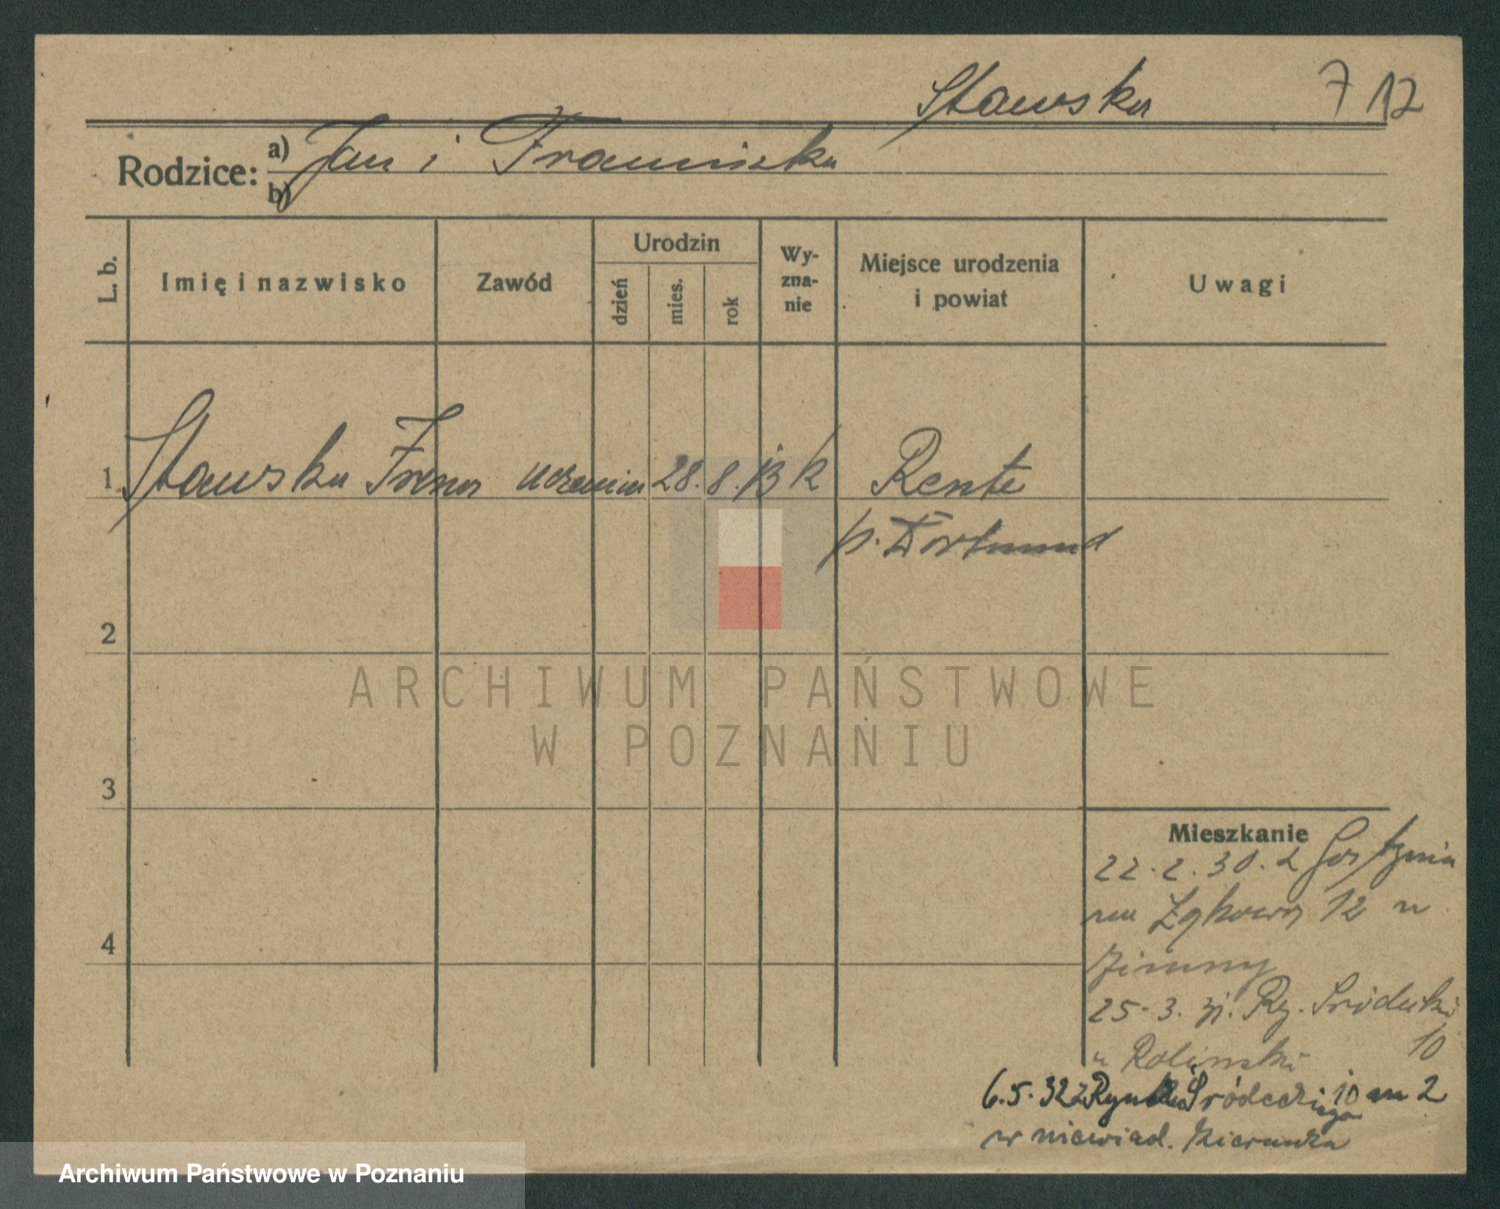 Stawska 712
Rodzice: a) Jan i Franciszka
b)
L. b.
Imię i nazwisko
Zawód
Urodzin
dzień
mies.
rok
Wy-
zna-
nie
Miejsce urodzenia
i powiat
Uwagi
1 Stawska Irena uczenica 28. 8. 13 k Rente
p. Dortmund
2
3
4
ARCHIWUM PAŃSTWOWE
W POZNANIU
Mieszkanie
22. 2. 30. z Gostynia
na 12 u
Zimny
25. 3. Ry. Śródecki
u Rolinski 10
6.5.32 z Rynku Śródeckiego 10 m 2
w niewiad. kierunku
Archiwum Państwowe w Poznaniu